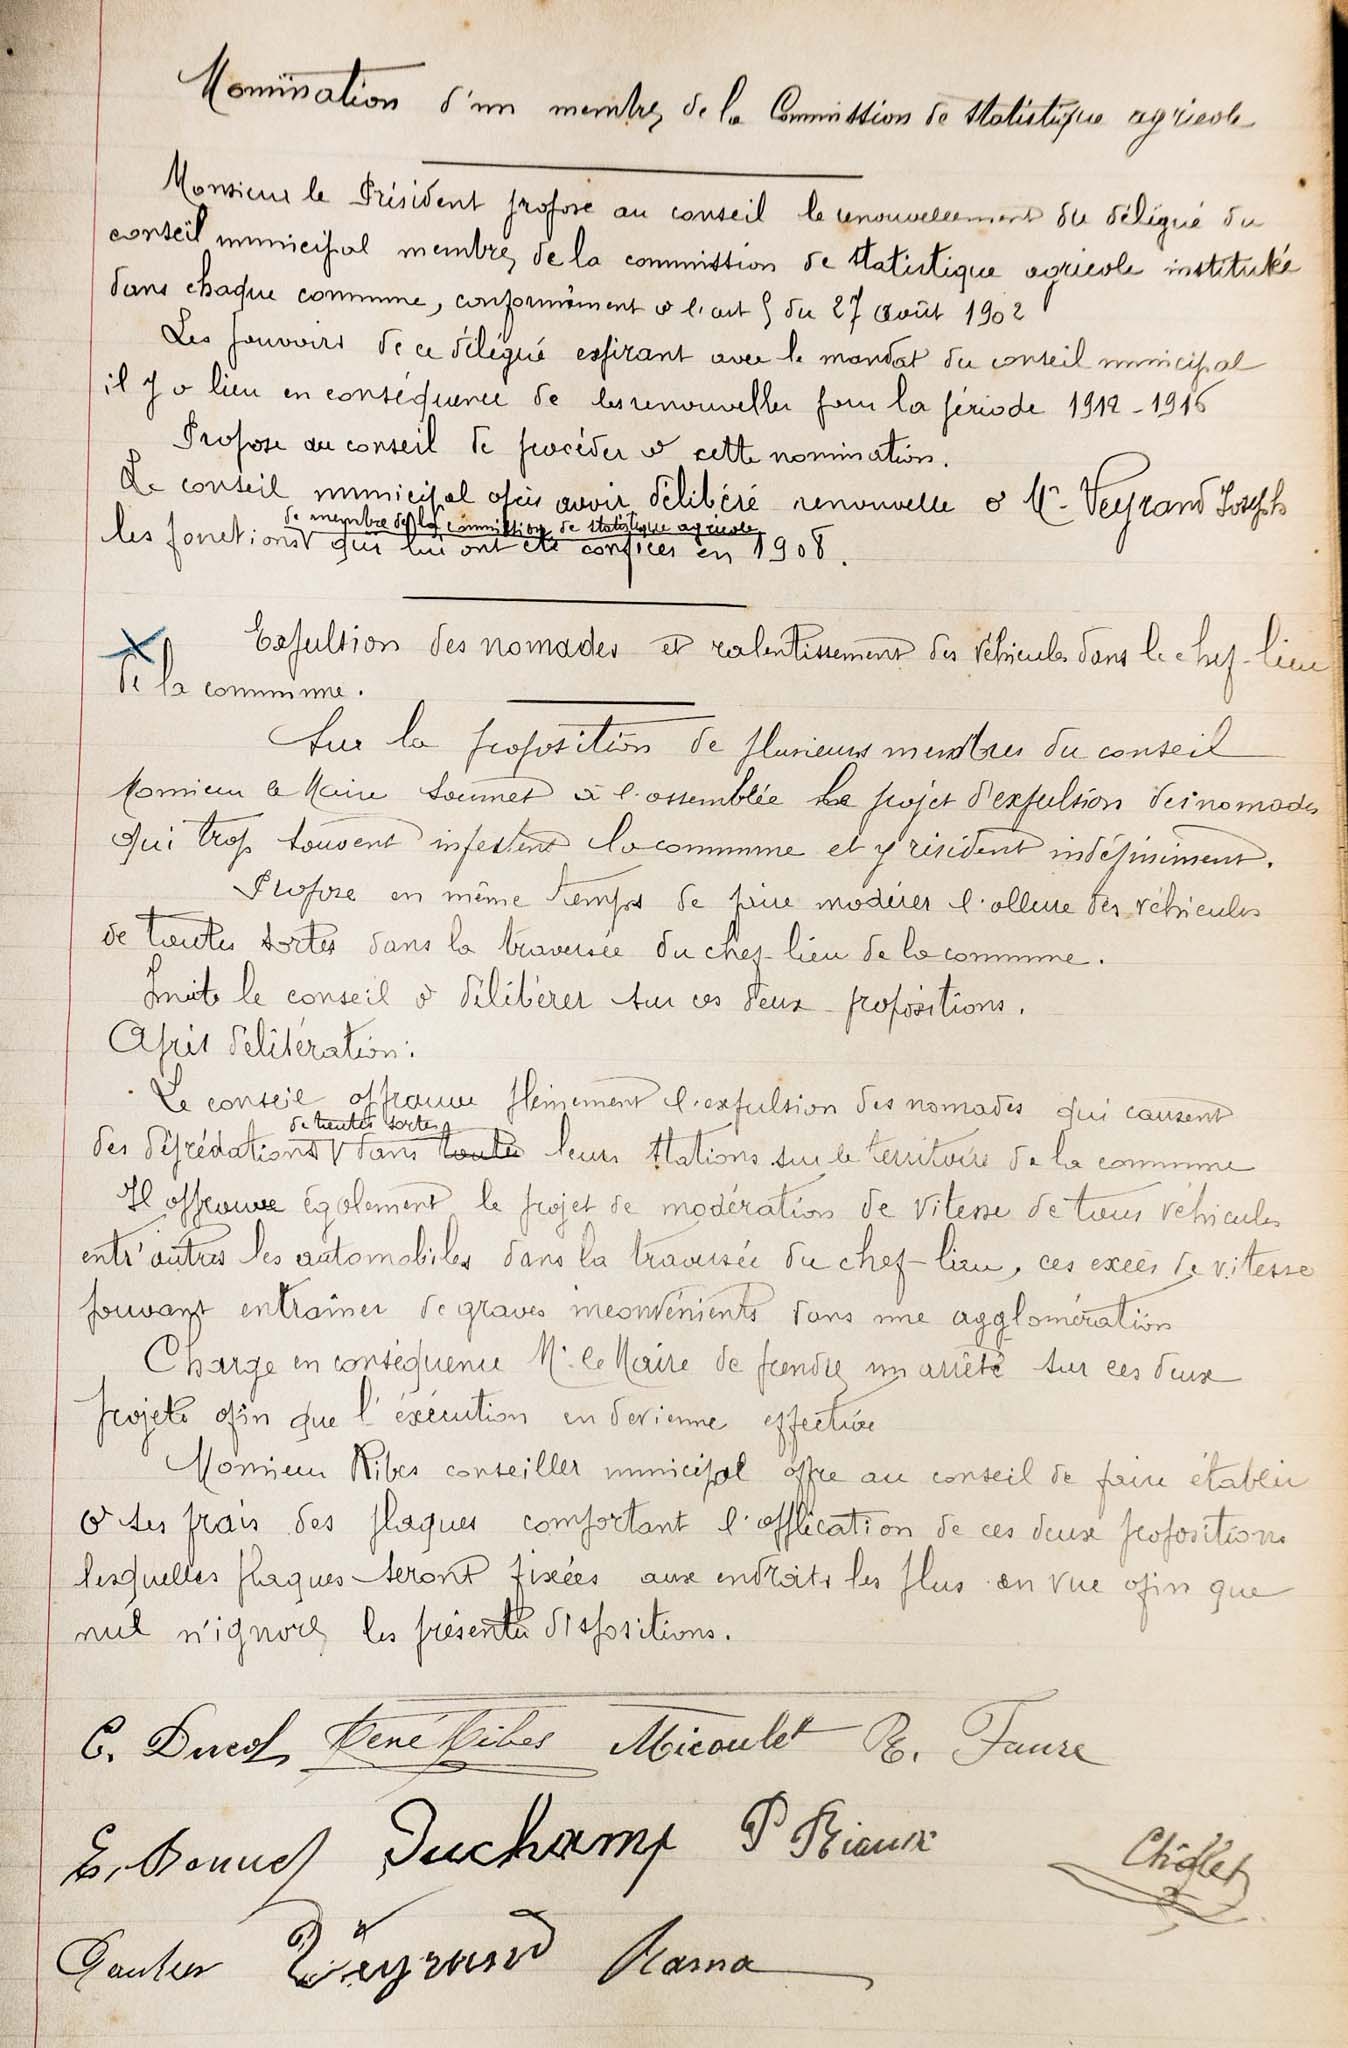 Nomination d'un membre de la Commission de statistique agricole
Monsieur le Président propose au conseil le renouvellement du délégué du
conseil municipal membre de la commission de statistique agricole instituée
dans chaque commune, conformément à l'art 5 du 27 Août 1902
Les pouvoirs de ce délégué expirant avec le mandat du conseil municipal
il y a lieu en conséquence de les renouveller pour la période 1912-1916
Propose au conseil de procéder à cette nomination.
Le conseil municipal après avoir délibéré renouvelle à Mr Veyrand Joseph
de membre de la commission de statistique agricole
les fonctions qui lui ont été confiées en 1908.
Expulsion des nomades et ralentissement des véhicules dans le chef-lieu
de la commune.
Sur la proposition de plusieurs membres du conseil
Monsieur le Maire soumet à l'assemblée le projet d'expulsion des nomades
qui trop souvent infestent la commune et y résident indéfiniment.
Propose en même temps de faire modérer l'allure des véhicules
de toutes sortes dans la traversée du chef-lieu de la commune.
Invite le conseil à délibérer sur ces deux propositions.
Après délibération:
Le conseil approuve pleinement l'expulsion des nomades qui causent
de toutes sortes
des déprédations dans toutes leurs stations sur le territoire de la commune
Il approuve également le projet de modération de vitesse de tous véhicules
entr'autres les automobiles dans la traversée du chef-lieu, ces excès de vitesse
pouvant entraîner de graves inconvénients dans une agglomération
Charge en conséquence Mr le Maire de prendre un arrêté sur ces deux
projets afin que l'éxécution en devienne effective
Monsieur Ribes conseiller municipal offre au conseil de faire établir
à ses frais des plaques comportant l'application de ces deux propositions
lesquelles plaques seront fixées aux endroits les plus en vue afin que
nul n'ignore les présentes dispositions.
C. Ducol René Ribes Micoulet R. Faure
E. Bonnet Duchamp P Rioux Chollet
Gautier Veyrand